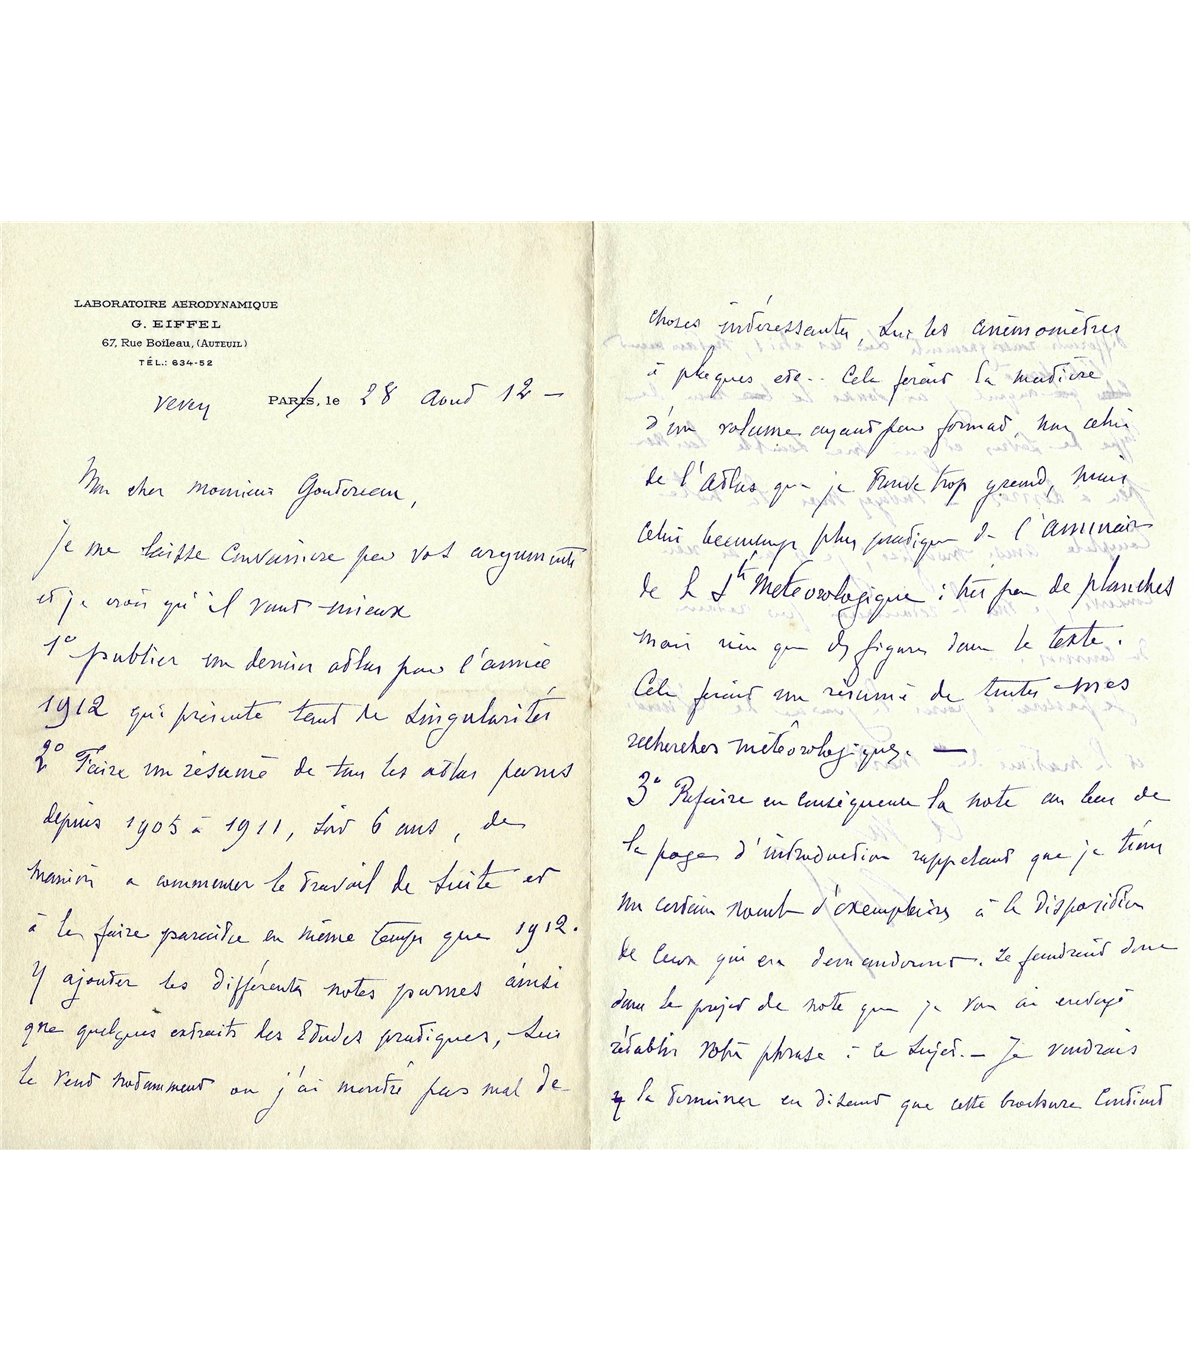 LABORATOIRE AERODYNAMIQUE
G. EIFFEL
67, Rue Boileau, (AUTEUIL)
TÉL.: 634-52
Vevey PARIS, le 28 Aout 12 —
Mon cher Monsieur Goutereau,
Je me laisse convaincre par vos arguments
et je crois qu'il vaut mieux
1° publier un dernier atlas pour l'année
1912 qui présente tant de singularités
2° Faire un résumé de tous les atlas parus
depuis 1905 à 1911, soit 6 ans, de
manière a commencer le travail de suite et
à les faire paraitre en même temps que 1912.
Y ajouter les différentes notes parues ainsi
que quelques extraits des Etudes pratiques, sur
le vent notamment ou j'ai montré pas mal de
choses intéressantes, sur les anémomètres
à plaques etc.. Cela ferait la matière
d'un volume ayant pour format, non celui
de l'Atlas que je trouve trop grand, mais
celui beaucoup plus pratique de l'annuaire
de la Sté Météorologique : très peu de planches
mais rien que des figures dans le texte.
Cela ferait un résumé de toutes mes
recherches météorologiques. —
3° Refaire en conséquence la note au lieu de
la page d'introduction rappelant que je tiens
un certain nombre d'exemplaires à la disposition
de ceux qui en demanderont. Il faudrait donc
dans le projet de note que je vous ai envoyé
rétablir votre phrase à ce sujet. — Je voudrais
y la terminer en disant que cette brochure contient